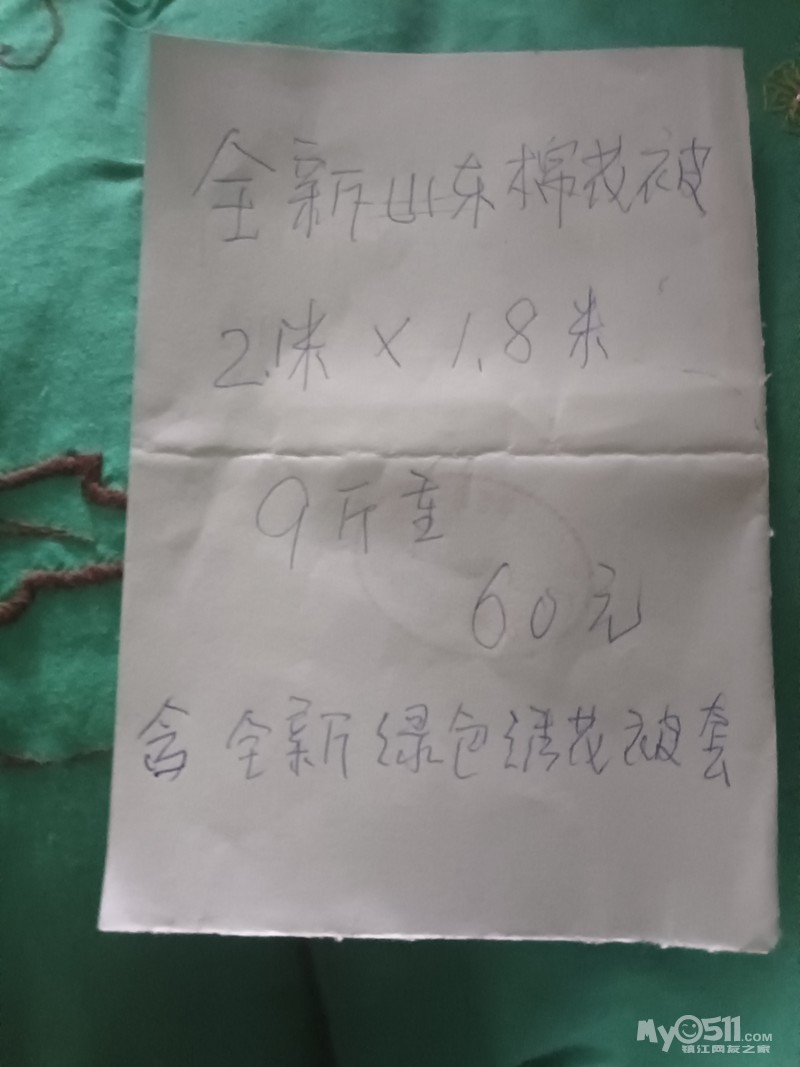 全新山东棉花被
2.1米 × 1.8米
9斤重
60元
含 全新绿色绣花被套
My0511.com
镇江网友之家